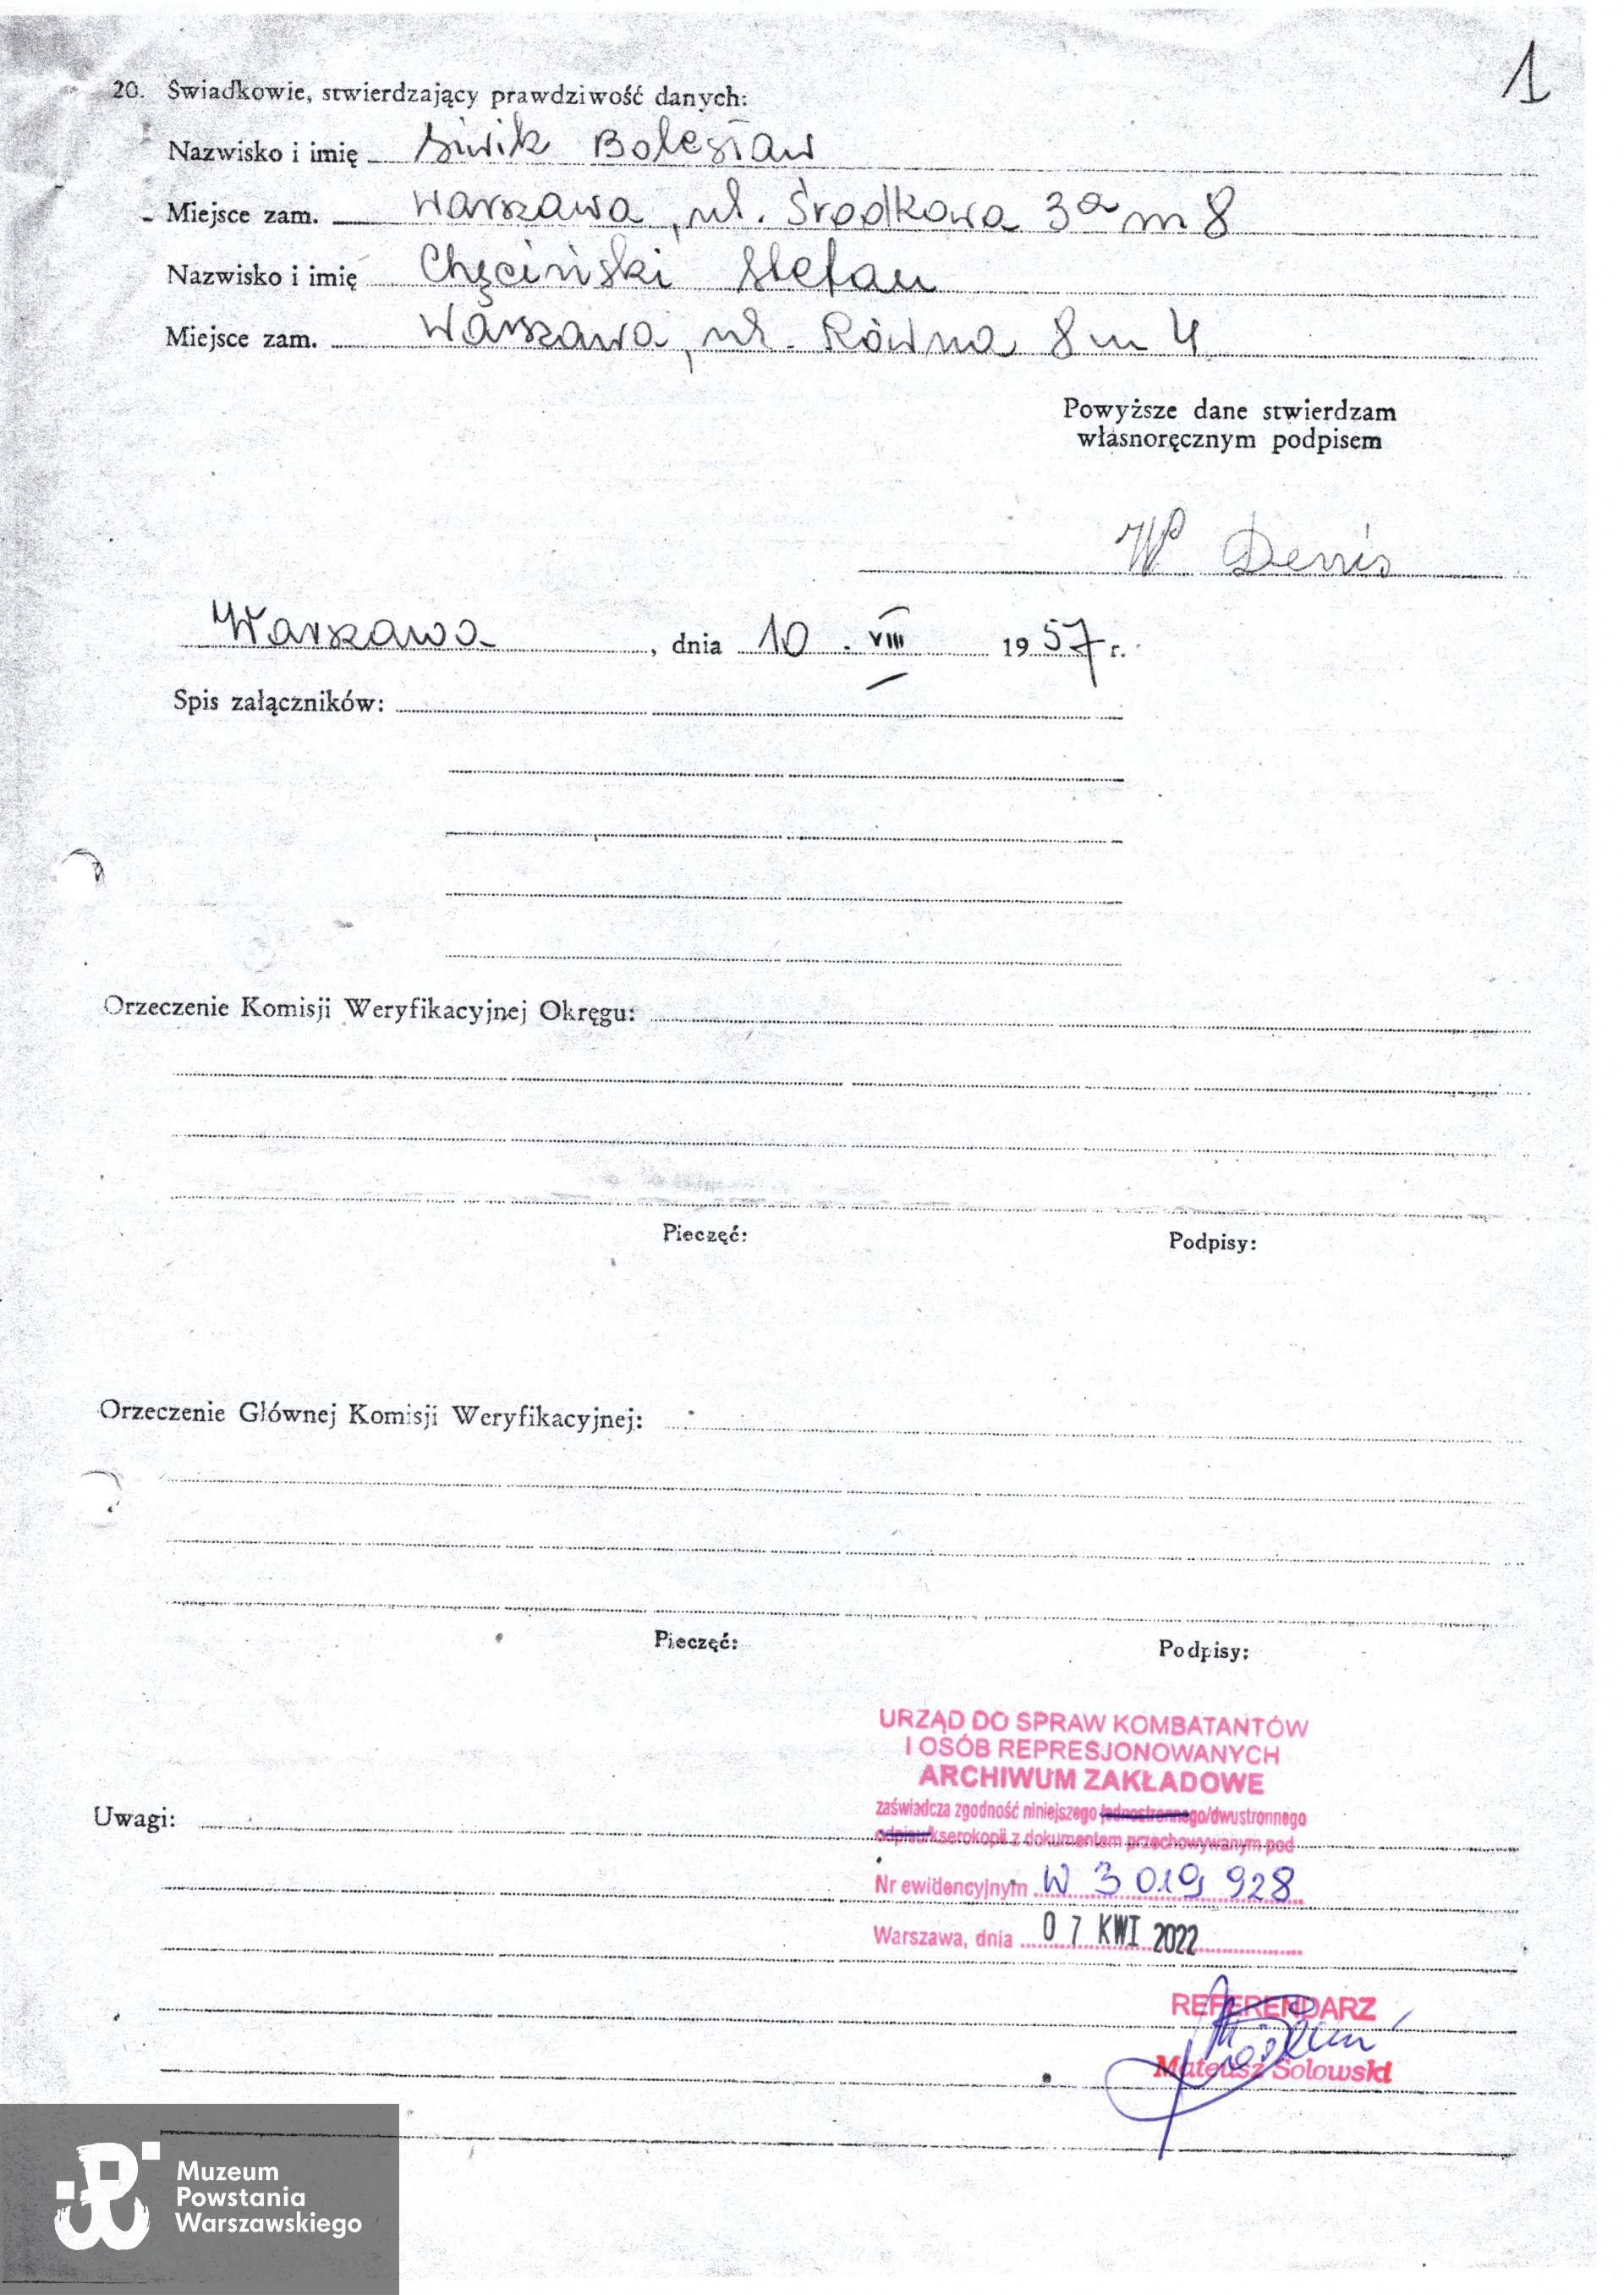 1
20. Świadkowie, stwierdzający prawdziwość danych:
Nazwisko i imię Siwik Bolesław
Miejsce zam. Warszawa, ul. Środkowa 3a m 8
Nazwisko i imię Chęciński Stefan
Miejsce zam. Warszawa, ul. Równa 8 m 4
Powyższe dane stwierdzam
własnoręcznym podpisem
W Denis
Warszawa, dnia 10. VIII 1957 r.
Spis załączników:
Orzeczenie Komisji Weryfikacyjnej Okręgu:
Pieczęć: Podpisy:
Orzeczenie Głównej Komisji Weryfikacyjnej:
Pieczęć: Podpisy:
URZĄD DO SPRAW KOMBATANTÓW
I OSÓB REPRESJONOWANYCH
ARCHIWUM ZAKŁADOWE
zaświadcza zgodność niniejszego jednostronnego/dwustronnego
odpisu/kserokopii z dokumentem przechowywanym pod
Uwagi:
Nr ewidencyjnym W 3 019 928
Warszawa, dnia 07 KWI 2022
REFERENDARZ
Mateusz Solowski
Muzeum
Powstania
Warszawskiego